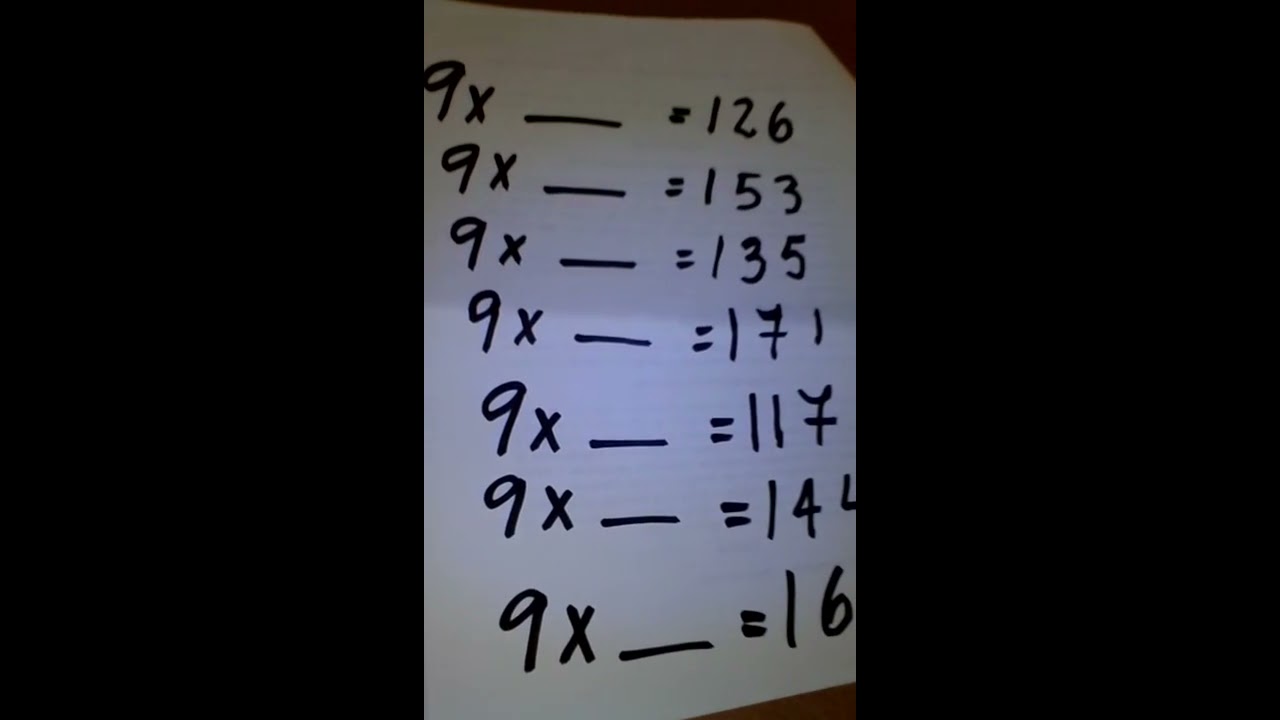 9x ___ =126
9x ___ =153
9x ___ =135
9x ___ =171
9x ___ =117
9x ___ =144
9x ___ =16